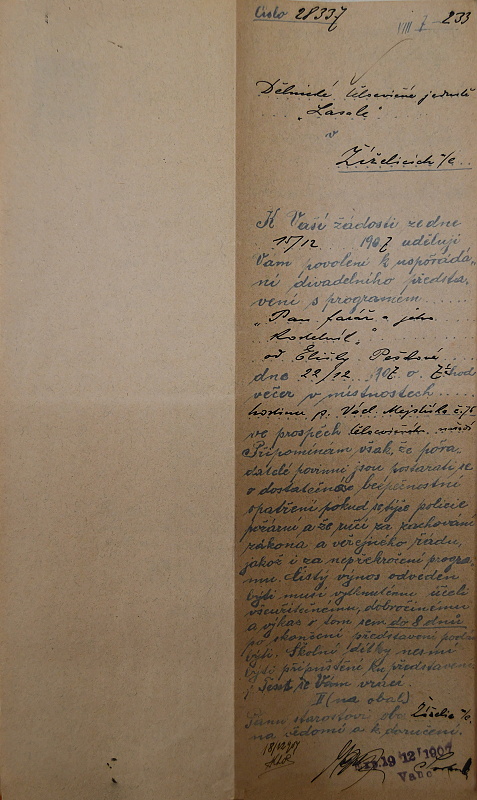 Číslo 28337 VIII 7 233
Dělnické tělocvičné jednotě
„Lasale“
v
Žiželicích n/C.
K Vaší žádosti ze dne
15/12 1907 uděluji
Vám povolení k uspořádá„
ní divadelního předsta„
vení s programem
„Pan farář a jeho
kostelník“
od Elišky Peškové
dne 22/12 1907 o 7½ hod
večer v místnostech
hostince p. Václ. č. 75
ve prospěch tělocvičného nářadí
Připomínám však, že pořa„
datelé povinni jsou postarati se
o dostatečnáe bezpečnostní
opatření pokud se týče policie
požární a že ručí za zachování
zákona a veřejného řádu,
jakož i za nepřekročení progra„
mu. Čistý výnos odveden
býti musí vytknutému účeli
všeužitečnému, dobročinnému
a výkaz o tom sem do 8 dnů
po skončení představení podán
býti. Školní dítky nesmí
býti připuštěni ku představení
Text se Vám vrací.
II (na obal)
Panu starostovi obce Žiželic n/C.
na vědomí a k doručení.
18/12 907
19 /12/ 1907